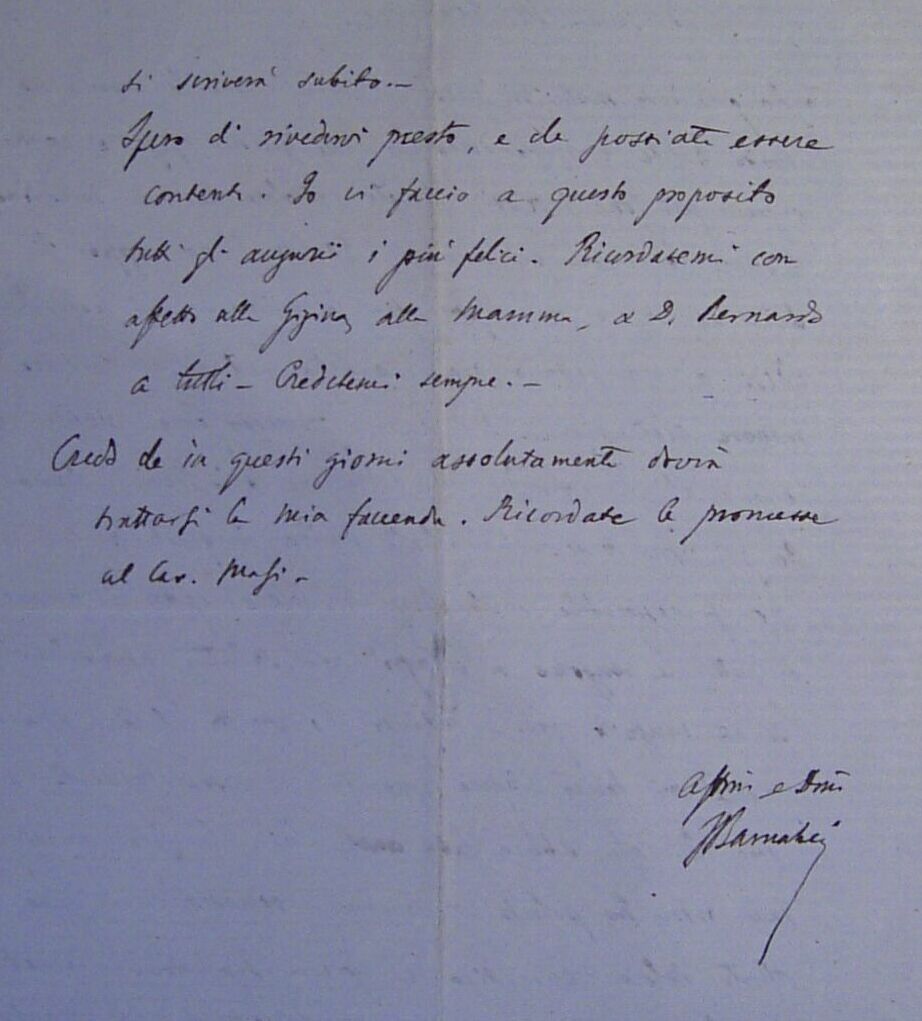 si scriverà subito.—
Spero di rivedervi presto, e che possiate essere
contenti. Io vi faccio a questo proposito
tutti gli augurii i più felici. Ricordatemi con
affetto alla Gigina, alla Mamma, a D. Bernardo
a tutti — Credetemi sempre. —
Credo che in questi giorni assolutamente dovrà
trattarsi la mia faccenda. Ricordate le promesse
al Cav. Masi —
Affmo e Dmo
FBarnabei